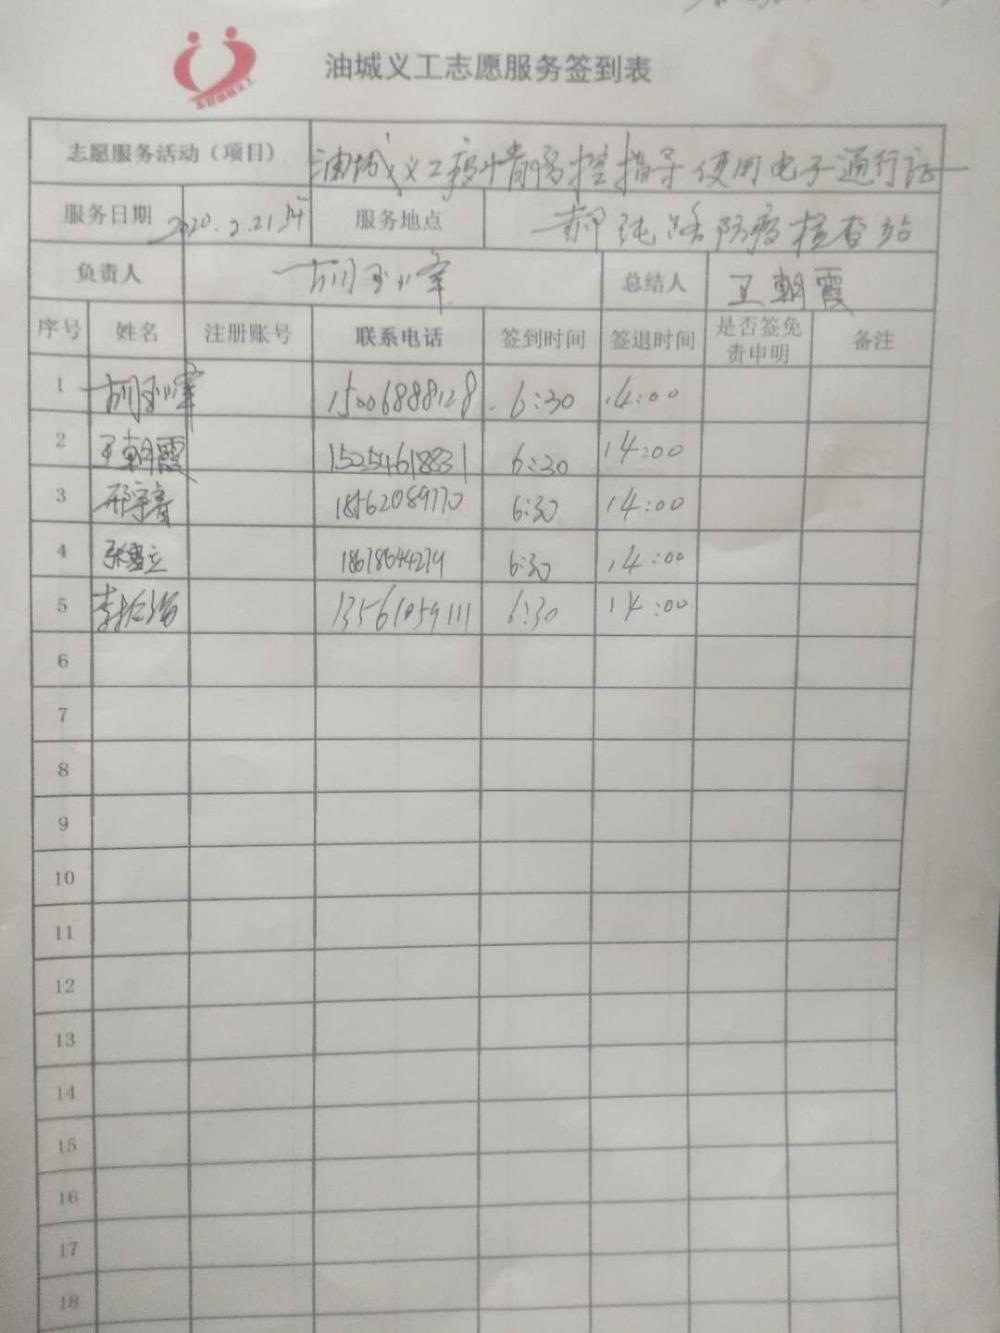 油城义工志愿服务签到表
志愿服务活动（项目） 油城义工疫情防控指导使用电子通行证
服务日期 2020.2.21 服务地点 郝纯路防疫检查站
负责人 胡玉军 总结人 王朝霞
序号 姓名 注册账号 联系电话 签到时间 签退时间 是否签免责申明 备注
1 胡玉军 15006888128 6:30 14:00
2 王朝霞 15254618831 6:30 14:00
3 18562089770 6:30 14:00
4 18678644279 6:30 14:00
5 13561059111 6:30 14:00
6
7
8
9
10
11
12
13
14
15
16
17
18